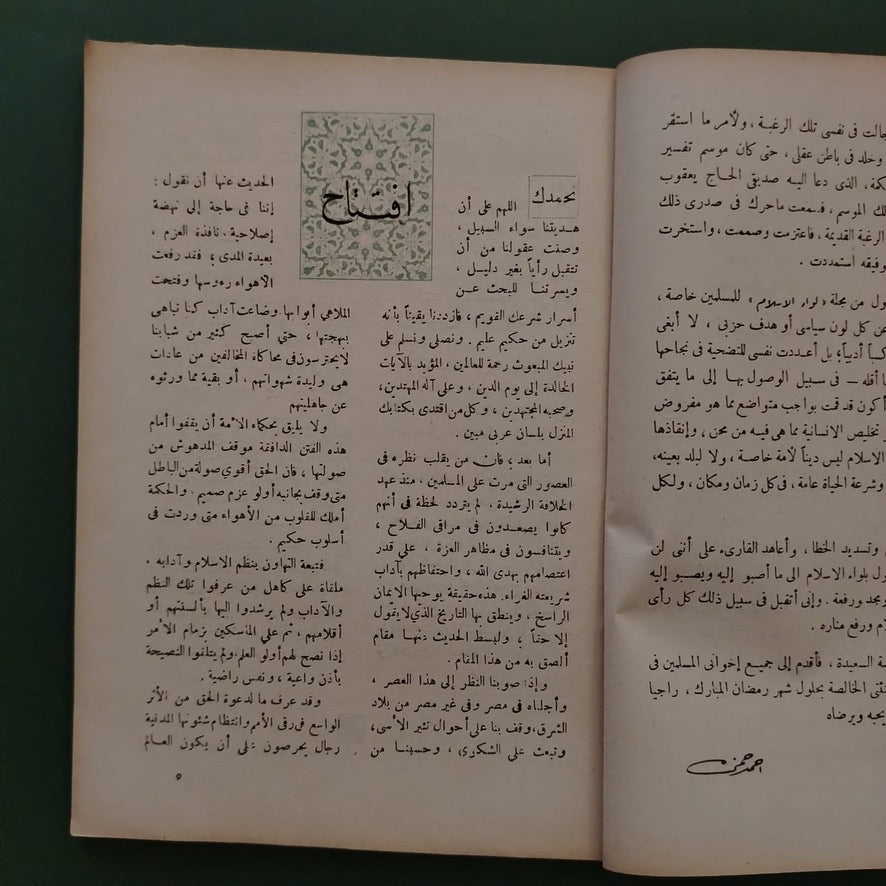 جالت فى نفسى تلك الرغبة ، ولأمر ما استقر
وخلد فى باطن عقلى ، حتى كان موسم تفسير
كمة، الذى دعا اليه صديقى الحاج يعقوب
لك الموسم ، فسمعت ماحرك فى صدرى ذلك
الرغبة القديمة ، فاعتزمت وصممت ، واستخرت
وفيقه استعددت .
ول من مجلة «لواء الاسلام» للمسلمين خاصة ،
عن كل لون سياسى أو هدف حزبى ، لا أبغى
كسباً أدبياً؛ بل أعددت نفسى للتضحية فى نجاحها
ا أقله — فى سبيل الوصول بها إلى ما يتفق
أكون قد قمت بواجب متواضع مما هو مفروض
تخليص الانسانية مما هى فيه من محن ، وإنقاذها
الاسلام ليس ديناً لأمة خاصة ، ولا لبلد بعينه،
وشرعة الحياة عامة ، فى كل زمان ومكان ، ولكل
وتسديد الخطا ، وأعاهد القارىء على أننى لن
ول بلواء الاسلام الى ما أصبو إليه ويصبو إليه
ومجد ورفعة . وإنى أتقبل فى سبيل ذلك كل رأى
لام ورفع مناره .
ة السعيدة ، فأقدم إلى جميع إخوانى المسلمين فى
نئتى الخالصة بحلول شهر رمضان المبارك ، راجيا
يحبه ويرضاه
احمد حمزه
افتتاح
نحمدك اللهم على أن
هديتنا سواء السبيل ،
وصنت عقولنا من أن
تتقبل رأياً بغير دليل ،
ويسرتنا للبحث عن
أسرار شرعك القويم ، فازددنا يقيناً بأنه
تنزيل من حكيم عليم . ونصلى ونسلم على
نبيك المبعوث رحمة للعالمين ، المؤيد بالآيات
الخالدة إلى يوم الدين ، وعلى آله المهتدين ،
وصحبه المجتهدين ، وكل من اقتدى بكتابك
المنزل بلسان عربى مبين .
أما بعد ؛ فان من يقلب نظره فى
العصور التى مرت على المسلمين ، منذ عهد
الخلافة الرشيدة ، لم يتردد لحظة فى أنهم
كانوا يصعدون فى مراقى الفلاح ،
ويتنافسون فى مظاهر العزة ، على قدر
اعتصامهم بهدى الله ، واحتفاظهم بآداب
شريعته الغراء. هذه حقيقة يوحيها الايمان
الراسخ ، وينطق بها التاريخ الذى لا يقول
إلا حقاً ؛ ولبسط الحديث عنها مقام
ألصق به من هذا المقام .
وإذا صوبنا النظر إلى هذا العصر ،
وأجلناه فى مصر وفى غير مصر من بلاد
الشرق، وقف بنا على أحوال تثير الأسى،
وتبعث على الشكوى ، وحسبنا من
الحديث عنها أن نقول :
إننا فى حاجة إلى نهضة
إصلاحية ، نافذة العزم ،
بعيدة المدى ؛ فقد رفعت
الأهواء رءوسها وفتحت
الملاهى أبوابها وضاعت آداب كنا نباهى
ببهجتها ، حتى أصبح كثير من شبابنا
لا يحترسون فى محاكاة المخالفين من عادات
هى وليدة شهواتهم ، أو بقية مما ورثوه
عن جاهليتهم
ولا يليق بحكماء الأمة أن يقفوا أمام
هذه الفتن الدافقة موقف المدهوش من
صولتها ، فان الحق أقوى صولة من الباطل
متى وقف بجانبه أولو عزم صميم . والحكمة
أملك للقلوب من الأهواء متى وردت فى
أسلوب حكيم .
فتبعة التهاون بنظم الاسلام وآدابه ،
ملقاة على كاهل من عرفوا تلك النظم
والآداب ولم يرشدوا اليها بألسنتهم أو
أقلامهم ، ثم على الماسكين بزمام الأمر
إذا نصح لهم أولو العلم، ولم يتلقوا النصيحة
بأذن واعية ، ونفس راضية .
وقد عرف ما لدعوة الحق من الأثر
الواسع فى رقى الأمم وانتظام شئونها المدنية
رجال يحرصون على أن يكون العالم
٥